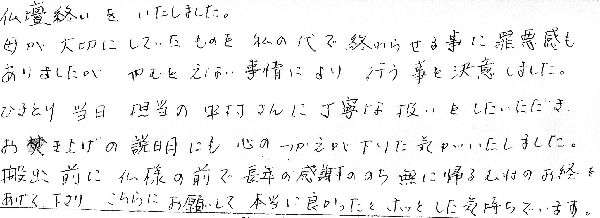 仏壇終いをいたしました。
母が大切にしていたものを私の代で終わらせる事に罪悪感も
ありましたが やむをえない事情により 行う事を決意しました。
ひきとり当日 担当の中村さんに丁寧な扱いをしていただき
お焚き上げの説明にも 心のつかえが下りた気がいたしました。
搬出前に 仏様の前で 長年の感謝ののち 無に帰るためのお経を
あげて下さり こちらにお願いして 本当に良かったと ホッとした気持ちでいます。